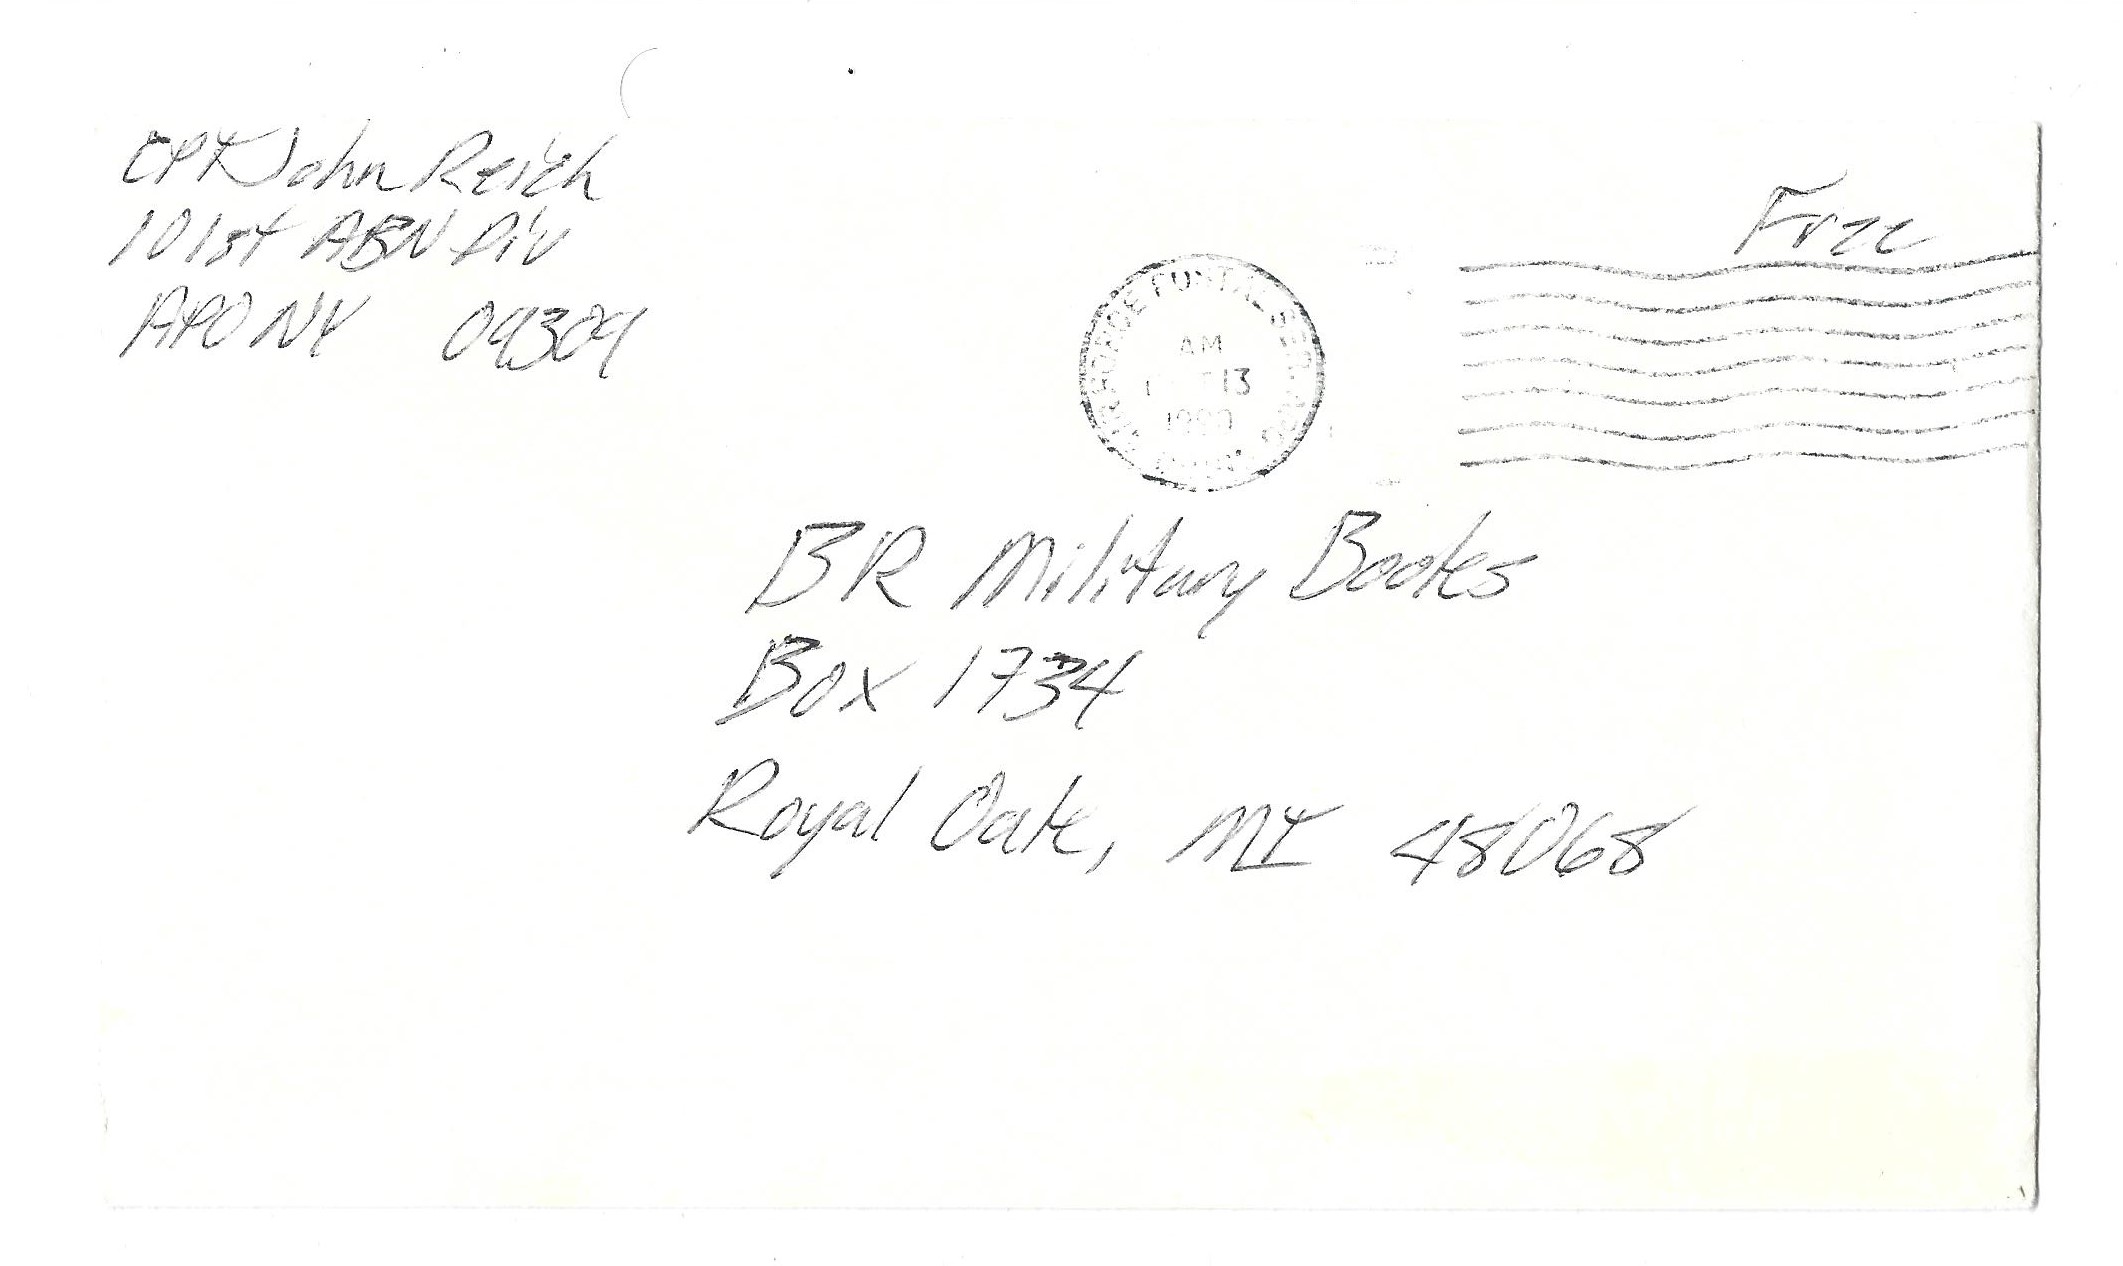 CPT John Reich
101st ABN Div
APO NY 09309
Free
AIR FORCE POSTAL
AM
13
1990
BR Military Books
Box 1734
Royal Oak, MI 48068